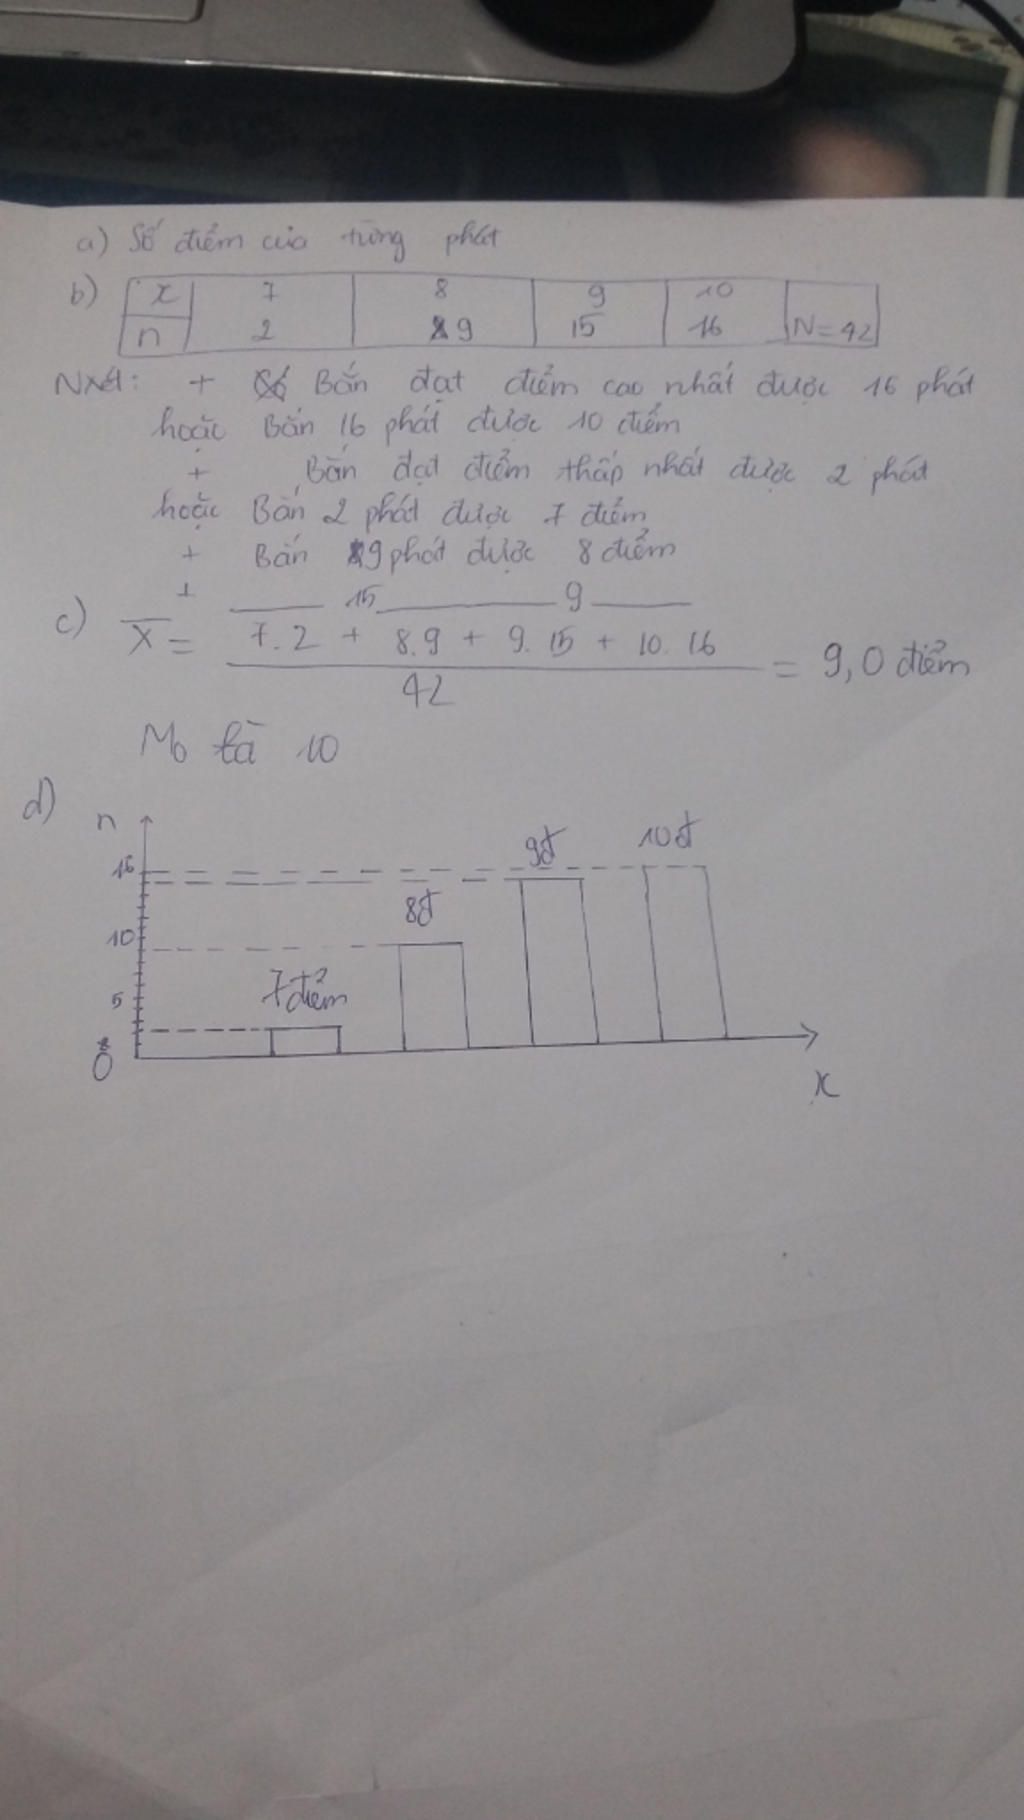 a) Số điểm của từng phát
b) x 7 8 9 10
n 2 9 15 16 N=42
Nxét: + Bắn đạt điểm cao nhất được 16 phát
hoặc Bắn 16 phát được 10 điểm
+ Bắn đạt điểm thấp nhất được 2 phát
hoặc Bắn 2 phát được 7 điểm
+ Bắn 9 phát được 8 điểm
+ 15 9
c) X̅ = 7.2 + 8.9 + 9.15 + 10.16 = 9,0 điểm
42
M₀ là 10
d) n
9đ 10đ
16
8đ
10
7 điểm
5
0
x